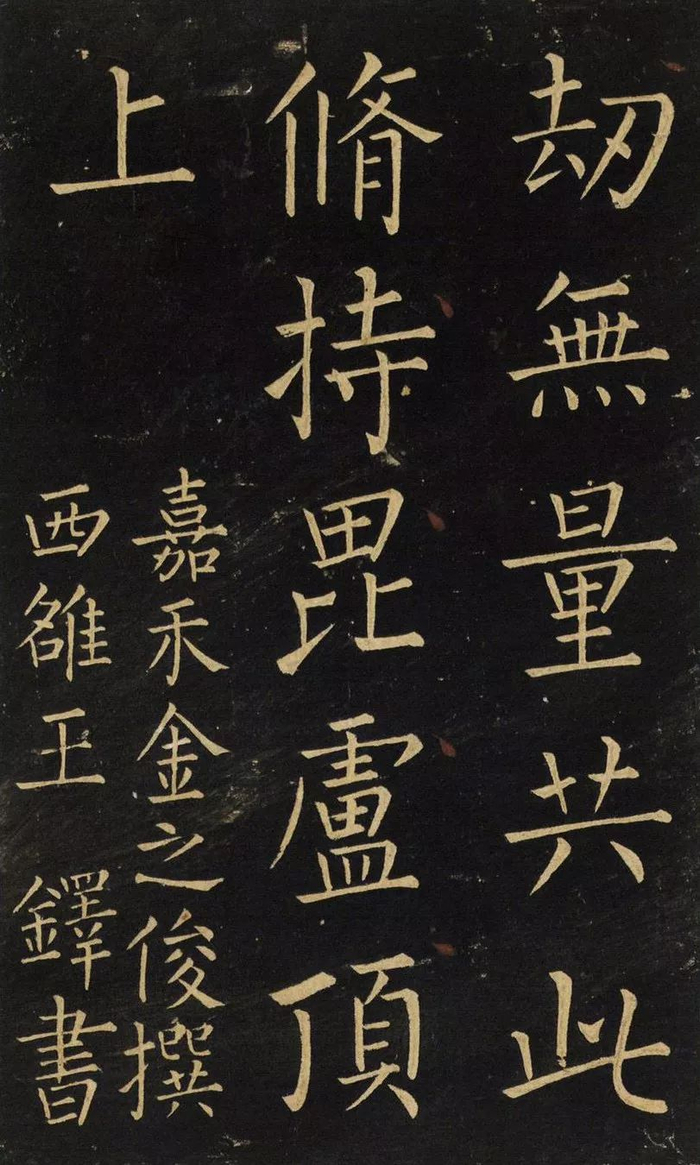 刧無量共此
脩持毘盧頂
上
嘉禾金之俊撰
西雒王鐸書